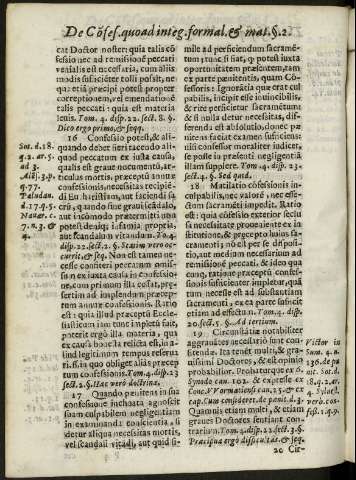 De Cõfes. quoad integ. formal. & mat. §. 2.
cat Doctor noster: quia talis cõ
fessio nec ad remissionem peccati
venialis est necessaria, cum alijs
modis sufficiéter tolli possit, ne-
qua; etiã præcipi potest propter
correptionem, vel emendationẽ
talis peccati: quia est materia
leuis. Tom. 4. disp. 22. sect. 8. §.
Dico ergo primo, & seqq.
16 Confessio potest, & ali-
quando debet fieri tacendo ali-
quod peccatum ex iusta causa,
qualis est graue nocumentũ, ar-
ticulus mortis, præcepti annuæ
confessionis, necessitas recipiẽ-
di Eucharistiam, aut faciendi sa-
crũ, quando sine graui scãdalo,
aut incõmodo prætermitti non
potest:
aut scandalum vitandum. To. 4.
disp. 22. sect. 2. §. Statim vero oc-
currit, & seq. Non est tamen ne-
cesse confiteri peccatum omis-
sum ex iusta causa in Confessio-
ne, cum primum illa cessat, præ-
sertim ad implendum præcep-
tum annuæ confessionis. Ratio
est: quia illud præceptũ Eccle-
siasticum iam tunc impleti fuit,
poterit ergo illa materia, quæ
ex causa honesta relicta est, in a-
liud legitimum tempus reserua-
ri, si aliquo obliget aliàs præcep-
tum confessionis. Tom. 4. disp. 23
sect. 2. §. Hæc vero doctrina.
17 Quando penitens in sua
confessione inchoata agnoscit
suam culpabilem negligentiam
in examinanda conscientia, si
detur aliqua necessitas mortis,
vel scandali vitãdi, aut quid si-
Sot. d. 18.
q. 2. ar. 5.
ad 2.
3. p.
q. 77.
Paludan.
d. 17. q. 5
Nauar. c.
7. n. 3. &
4.
mile ad perficiendum sacramẽ-
tum; tunc si fiat, q; potest iuxta
capacitatem præsentem, tam
ex parte pænitentis, quam Cõ-
fessoris: Ignorãtia quæ erat cul-
pabilis, incipit esse inuincibilis,
& rite perficietur sacramẽtum:
& si nulla detur necessitas, dif-
ferenda est absolutio, donec pæ-
nitens sit capax, nisi sufficientiũ
confessor moraliter iudicet,
se posse in præsenti negligentiã
illam supplere. Tom. 4. disp. 23.
sect. 4. §. Sed quid.
18 Mutilatio cõfessionis in-
culpabilis, nec valorẽ, nec effec-
tum sacramẽti impedit. Ratio
est: quia cõfessio exterior seclu
sa necessitate proueniente ex in
tentione, vel præcepto cõfitentis
sacramenti; nõ est per se disposi-
tio, aut medium necessarium ad
remissionẽ peccati, & ideo qua
cunq; ratione præceptũ confes-
sionis sufficienter impleatur, quã
tum necesse est ad substantiam
sacramẽti, ex ea parte sufficiat
etiam ad effectũ. Tom. 4. disp.
20. sect. 5. §. Ad tertium.
19 Circunstãtiæ notabiliter
aggrauãtes necessario sunt con-
fitendæ. Ita tenẽt multi, & gra-
uissimi Doctores, & est opinio
probabilis. Probatur quæ ex 6.
Synodo can. 102. & expresse ex
Conc. VVormatiensi can. 25. & ex
cap. Cum consideret. de pænit. d. 5.
Quamuis etiam multi, & etiam
graues Doctores sentiant con-
trarium. Tom. 4. disp. 22. sect. 3. §.
Præcipua ergo difficultas, & seq.
Victor in
Sum. n.
ar. Sot. d.
18. q. 2. ar.
4. Syluest.
verb. con-
fess. 1. q. 9.
20 Cir-